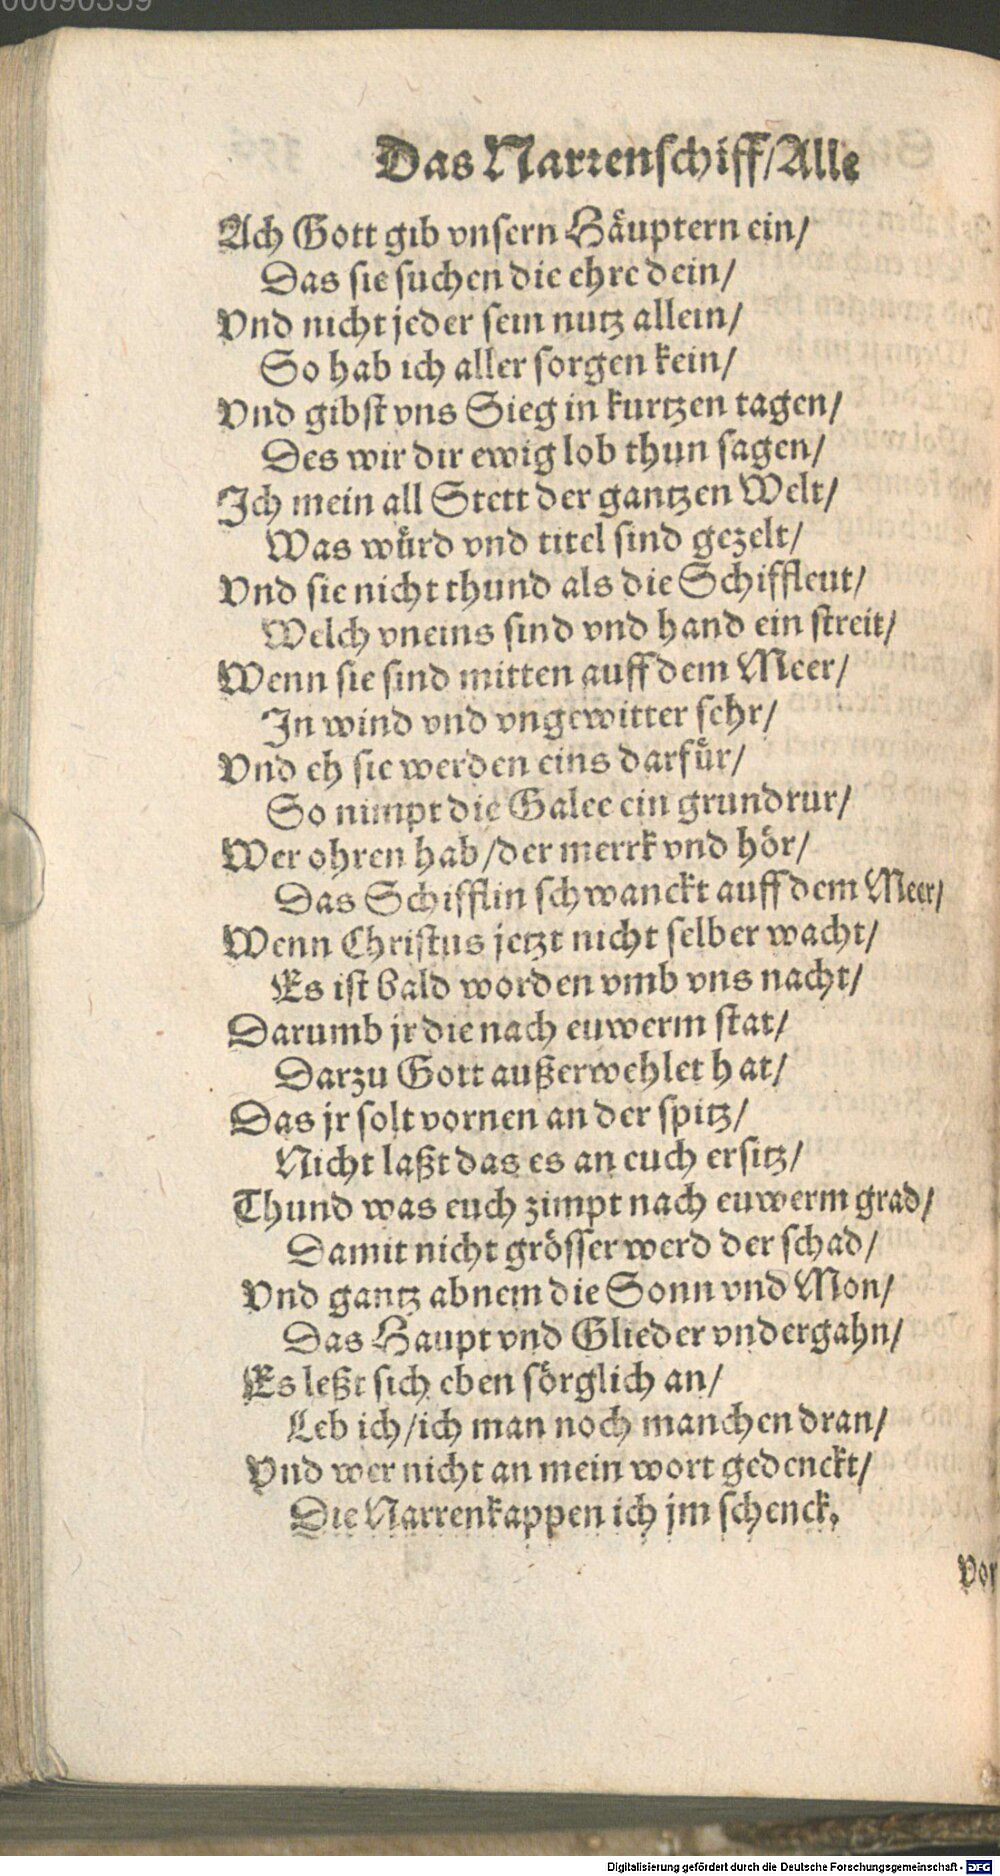 00090359
Das Narrenschiff/Alle
Ach Gott gib vnsern Häuptern ein/
Das sie suchen die ehre dein/
Vnd nicht jeder sein nutz allein/
So hab ich aller sorgen kein/
Vnd gibst vns Sieg in kurtzen tagen/
Des wir dir ewig lob thun sagen/
Ich mein all Stett der gantzen Welt/
Was würd vnd titel sind gezelt/
Vnd sie nicht thund als die Schiffleut/
Welch vneins sind vnd hand ein streit/
Wenn sie sind mitten auff dem Meer/
In wind vnd vngewitter sehr/
Vnd eh sie werden eins darfür/
So nimpt die Galee ein grundrur/
Wer ohren hab/der merrk vnd hör/
Das Schifflin schwanckt auff dem Meer/
Wenn Christus jetzt nicht selber wacht/
Es ist bald worden vmb vns nacht/
Darumb jr die nach euwerm stat/
Darzu Gott außerwehlet hat/
Das jr solt vornen an der spitz/
Nicht laßt das es an euch ersitz/
Thund was euch zimpt nach euwerm grad/
Damit nicht grösser werd der schad/
Vnd gantz abnem die Sonn vnd Mon/
Das Haupt vnd Glieder vndergahn/
Es leßt sich eben sörglich an/
Leb ich/ich man noch manchen dran/
Vnd wer nicht an mein wort gedenckt/
Die Narrenkappen ich jm schenck.
Vor
Digitalisierung gefördert durch die Deutsche Forschungsgemeinschaft - DFG